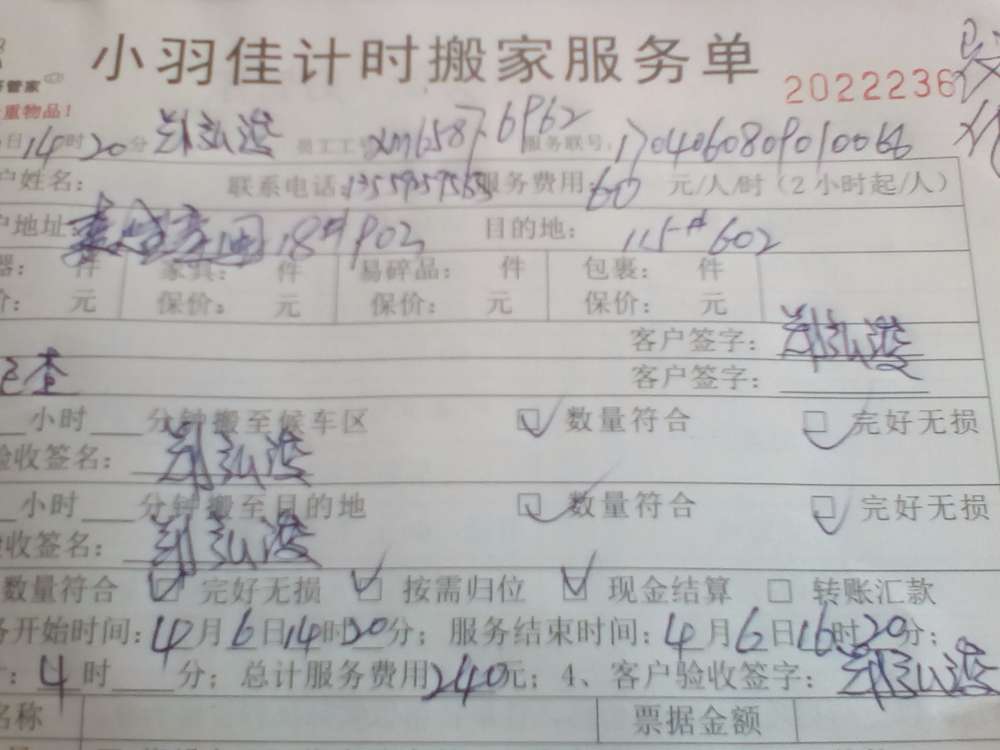 小羽佳计时搬家服务单
管家
2022236
重物品！
日14时20分 郑弘凌 员工工号:xm6587、6962 服务联号:1704060809010066
户姓名: 联系电话: 服务费用:60 元/人/时（2小时起/人）
户地址: 18# 902 目的地: 115# 602
器: 件 家具: 件 易碎品: 件 包裹: 件
价: 元 保价: 元 保价: 元 保价: 元
客户签字: 郑弘凌
已查 客户签字:
小时 分钟搬至候车区 数量符合 完好无损
验收签名: 郑弘凌
小时 分钟搬至目的地 数量符合 完好无损
验收签名: 郑弘凌
数量符合 完好无损 按需归位 现金结算 转账汇款
务开始时间:4月6日14时20分; 服务结束时间:4月6日16时20分;
:4时 分; 总计服务费用240元; 4、客户验收签字: 郑弘凌
名称 票据金额